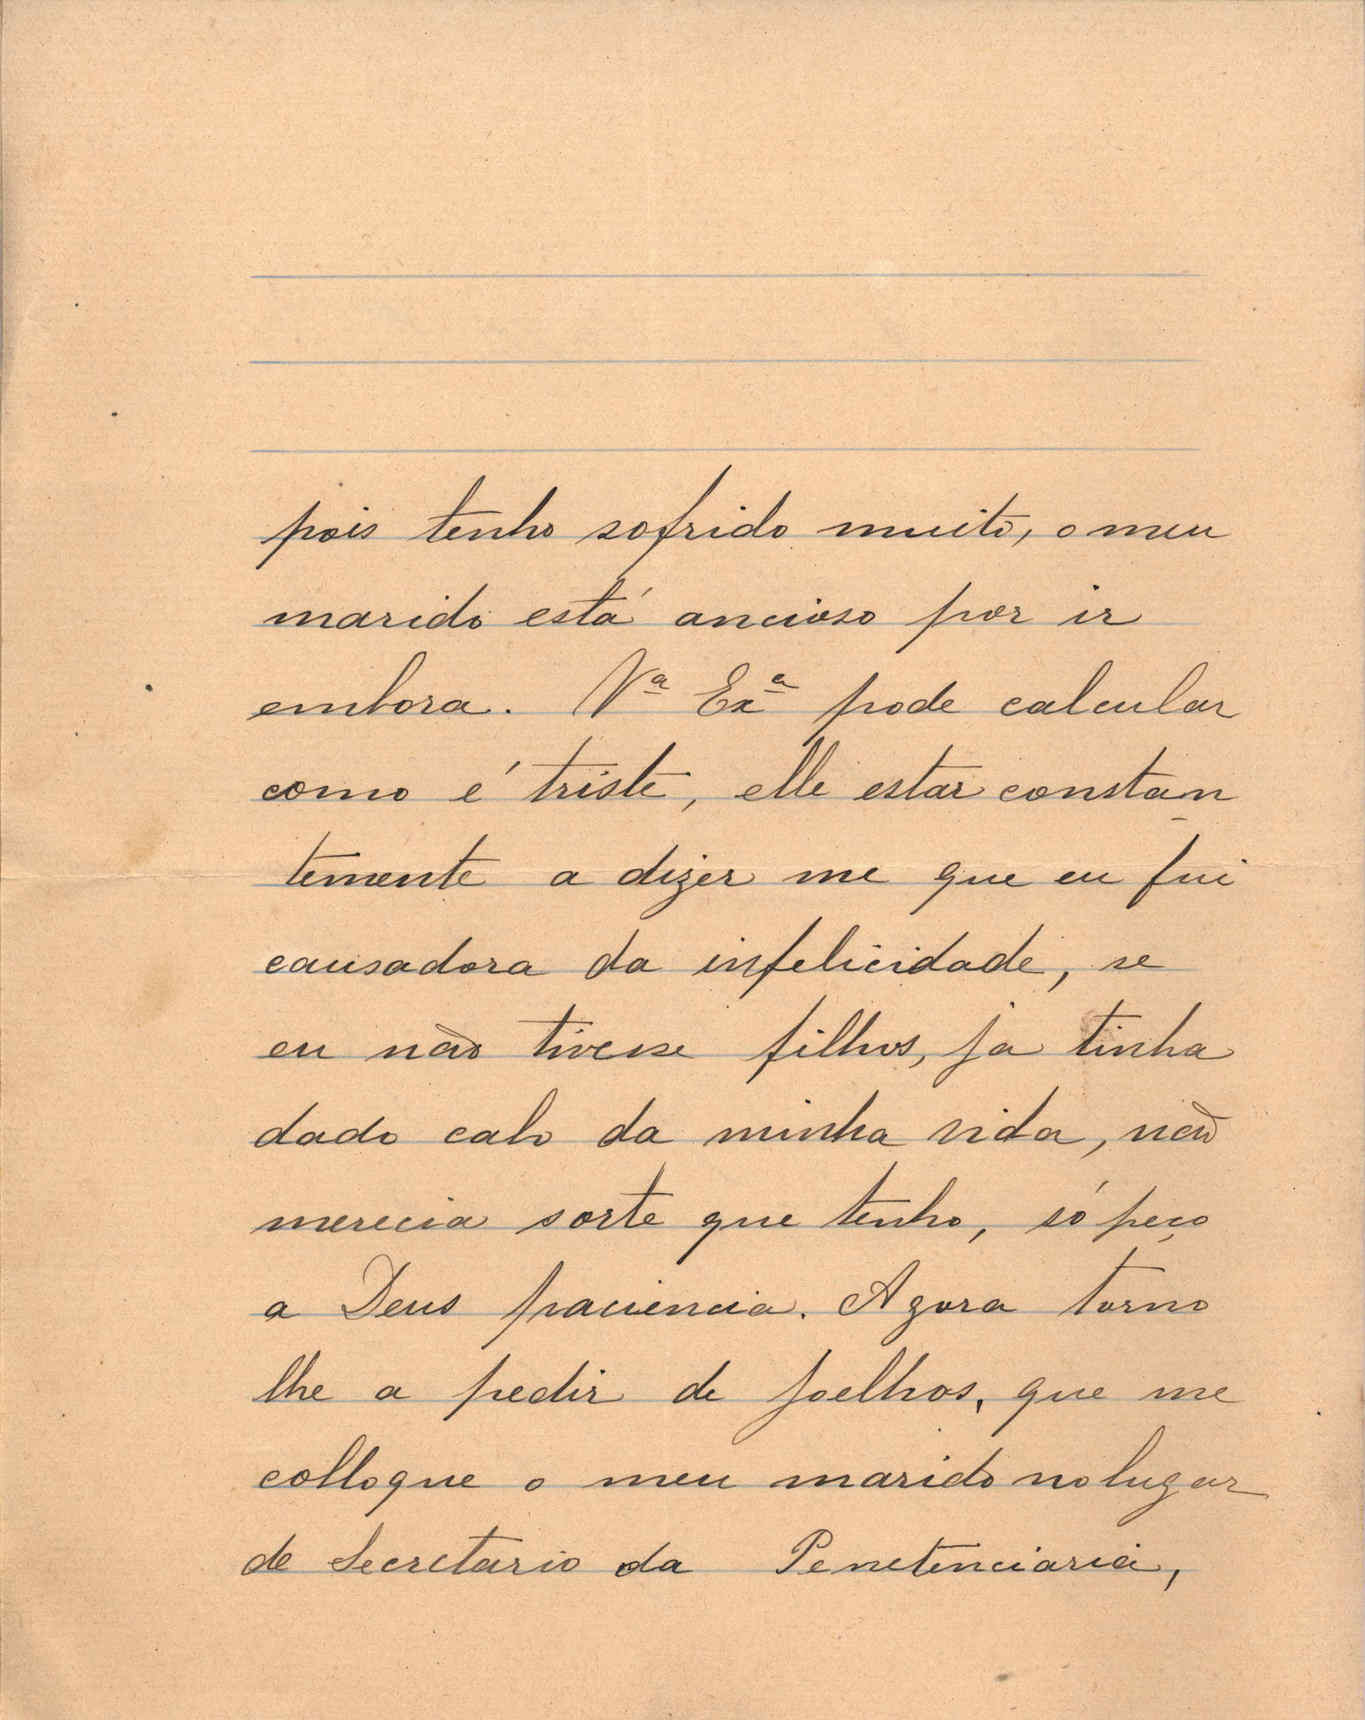 pois tenho sofrido muito, o meu
marido está ancioso por ir
embora. Vª Exª pode calcular
como é triste, elle estar constan
temente a dizer me que eu fui
causadora da infelicidade, se
eu não tivesse filhos, ja tinha
dado cabo da minha vida, não
merecia sorte que tenho, só peço
a Deus paciencia. Agora torno
lhe a pedir de joelhos, que me
colloque o meu marido no lugar
de Secretario da Penetenciaria,